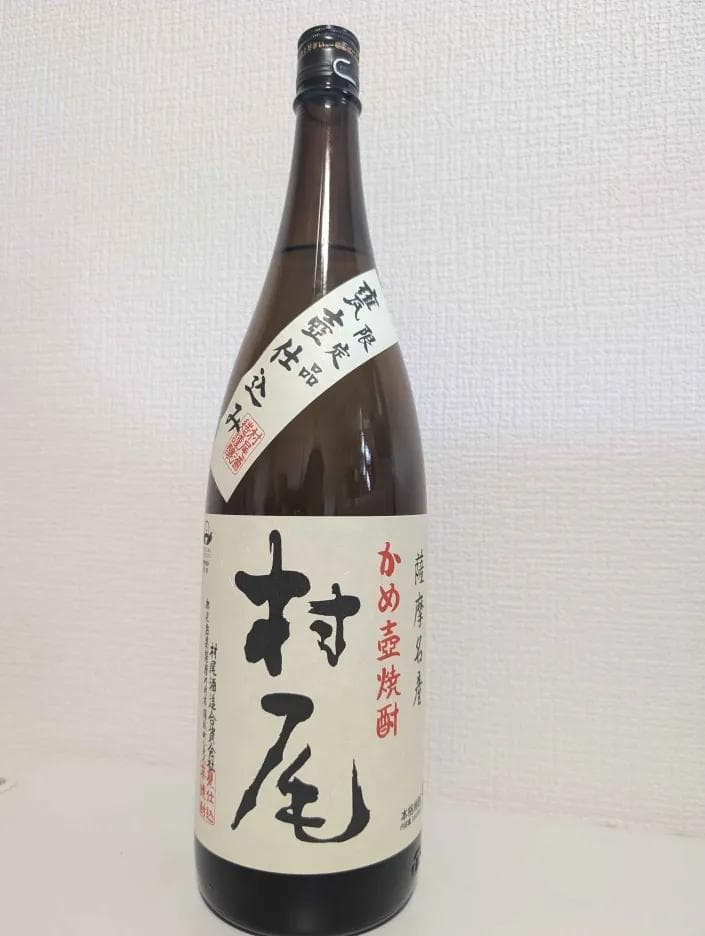 限定品
甕壺仕込み
薩摩名産
かめ壺焼酎
村尾
村尾酒造合資会社
本格焼酎